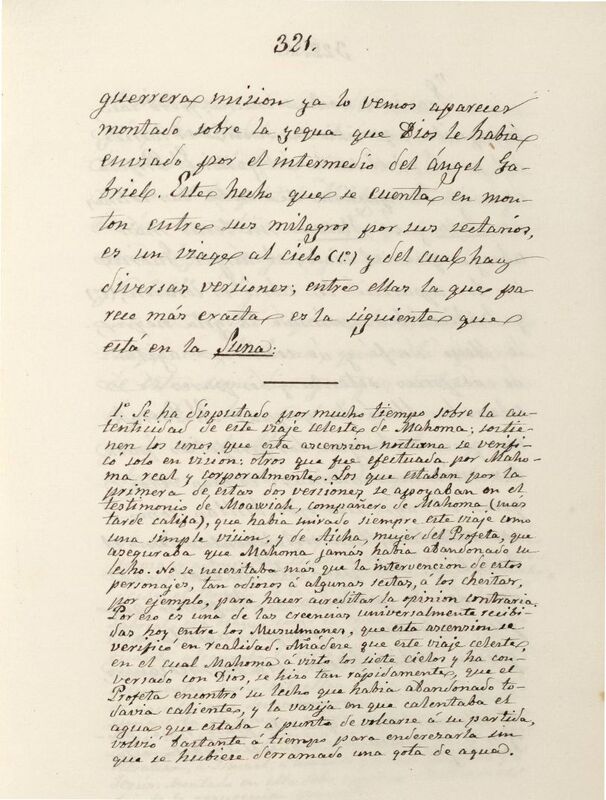 321.
guerrera mision ya lo vemos aparecer
montado sobre la yegua que Dios le habia
enviado por el intermedio del ángel Ga-
briel. Este hecho que se cuenta en mon-
ton entre sus milagros por sus sectarios,
es un viage al cielo (1º) y del cual hay
diversas versiones; entre ellas la que pa-
rece más exacta es la siguiente que
está en la Suna:
1º Se ha disputado por mucho tiempo sobre la au-
tenticidad de este viaje celeste de Mahoma; sostie-
nen los unos que esta ascension nocturna se verifi-
có solo en vision; otros que fue efectuada por Maho-
ma real y corporalmente. Los que estaban por la
primera de estas dos versiones se apoyaban en el
testimonio de Moawiah, compañero de Mahoma (mas
tarde califa), que habia mirado siempre este viaje como
una simple vision, y de Aicha, mujer del Profeta, que
aseguraba que Mahoma jamás habia abandonado su
lecho. No se necesitaba más que la intervencion de estos
personajes, tan odiosos á algunas sectas, á los chiitas,
por ejemplo, para hacer acreditar la opinion contraria.
Por eso es una de las creencias universalmente recibi-
das hoy entre los Musulmanes, que esta ascension se
verificó en realidad. Añádese que este viaje celeste,
en el cual Mahoma á visto los siete cielos y ha con-
versado con Dios, se hizo tan rápidamente, que el
Profeta encontró su lecho que habia abandonado to-
davia caliente, y la vasija en que calentaba el
agua que estaba á punto de volcarse á su partida,
volvió bastante á tiempo para enderezarla sin
que se hubiese derramado una gota de agua.